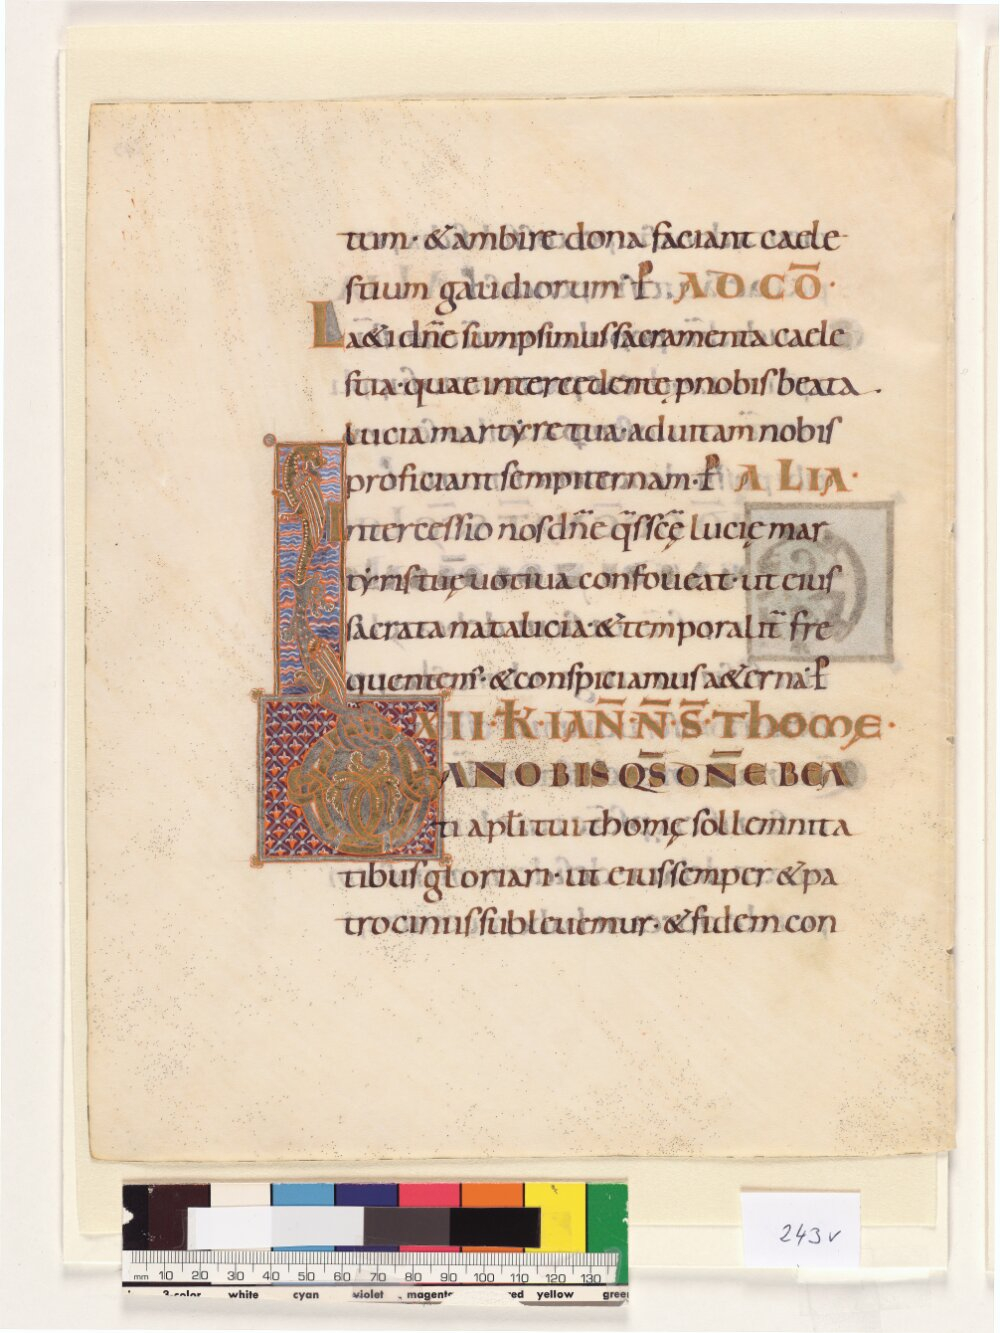 tum· & ambire dona faciant caele
stium gaudiorum· P̄. AD CŌ·
La&i dn̄e sumpsimus sacramenta caele
stia· quae intercędentę pnobis beata.
lucia martẏre tua· ad uitam̄ nobis
proficiant sempiternam· P̄ ALIA·
Intercessio nos dn̄e q̄s sc̄ę lucię mar
tẏris tuę uotiua confoueat· ut eius
sacrata natalicia· & temporalit̄ fre
quentens· & conspiciamus a&erna· P̄
XII·K̄·IAN̄·N̄·S̄·Thomę·
DA NOBIS QS̄ DN̄E BEA
ti apl̄i tui thomę sollemnita
tibus gloriari· ut eius semper & pa
trociniis subleuemur· & fidem con
mm 10 20 30 40 50 60 70 80 90 100 110 120 130
3-color white cyan violet magenta red yellow green
243v